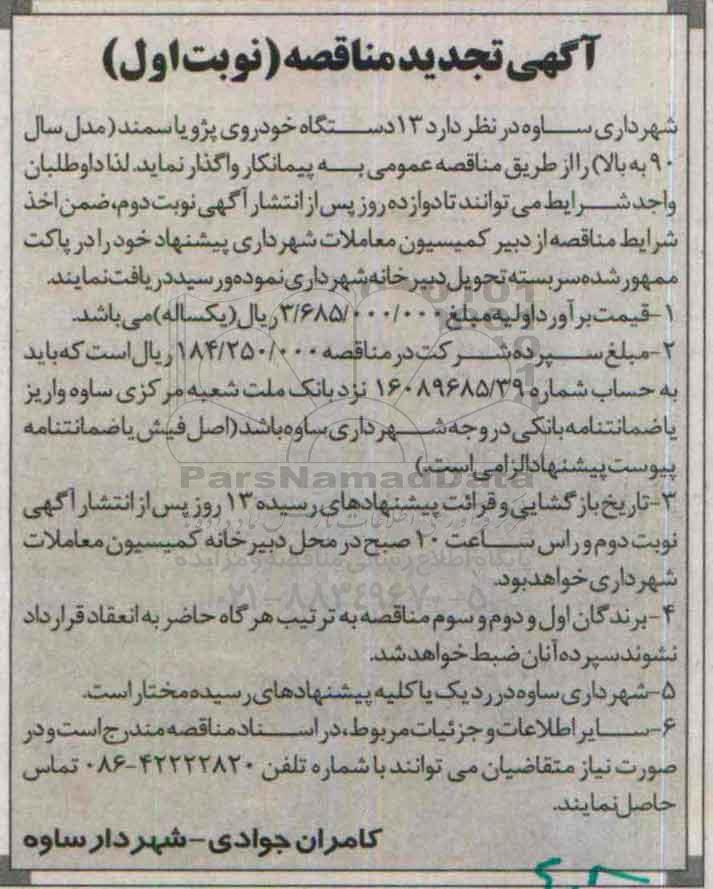 آگهی تجدید مناقصه (نوبت اول)
شهرداری ساوه در نظر دارد ۱۳ دستگاه خودروی پژو یا سمند (مدل سال
۹۰ به بالا) را از طریق مناقصه عمومی به پیمانکار واگذار نماید. لذا داوطلبان
واجد شرایط می توانند تا دوازده روز پس از انتشار آگهی نوبت دوم، ضمن اخذ
شرایط مناقصه از دبیر کمیسیون معاملات شهرداری پیشنهاد خود را در پاکت
ممهور شده سربسته تحویل دبیرخانه شهرداری نموده و رسید دریافت نمایند.
۱-قیمت برآورد اولیه مبلغ ۳/۶۸۵/۰۰۰/۰۰۰ ریال (یکساله) می باشد.
۲-مبلغ سپرده شرکت در مناقصه ۱۸۴/۲۵۰/۰۰۰ ریال است که باید
به حساب شماره ۱۶۰۸۹۶۸۵/۳۹ نزد بانک ملت شعبه مرکزی ساوه واریز
یا ضمانتنامه بانکی در وجه شهرداری ساوه باشد (اصل فیش یا ضمانتنامه
پیوست پیشنهاد الزامی است.)
ParsNamadData
۳-تاریخ بازگشایی و قرائت پیشنهادهای رسیده ۱۳ روز پس از انتشار آگهی
نوبت دوم و راس ساعت ۱۰ صبح در محل دبیرخانه کمیسیون معاملات
پایگاه اطلاع رسانی مناقصه و مزایده
شهرداری خواهد بود.
۰۲۱-۸۸۳۴۹۶۷۰-۵
۴-برندگان اول و دوم و سوم مناقصه به ترتیب هرگاه حاضر به انعقاد قرارداد
نشوند سپرده آنان ضبط خواهد شد.
۵-شهرداری ساوه در رد یک یا کلیه پیشنهادهای رسیده مختار است.
۶-سایر اطلاعات و جزئیات مربوط، در اسناد مناقصه مندرج است و در
صورت نیاز متقاضیان می توانند با شماره تلفن ۴۲۲۲۲۸۲۰-۰۸۶ تماس
حاصل نمایند.
کامران جوادی-شهردار ساوه